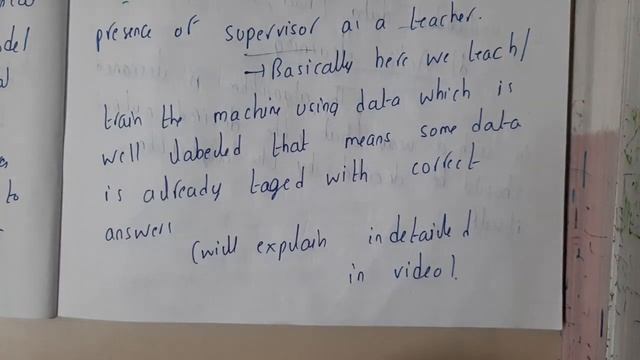 presence of supervisor as a teacher.
→ Basically here we teach/
train the machine using data which is
well labeled that means some data
is already taged with correct
answer
(will explain in detailed
in video).
to